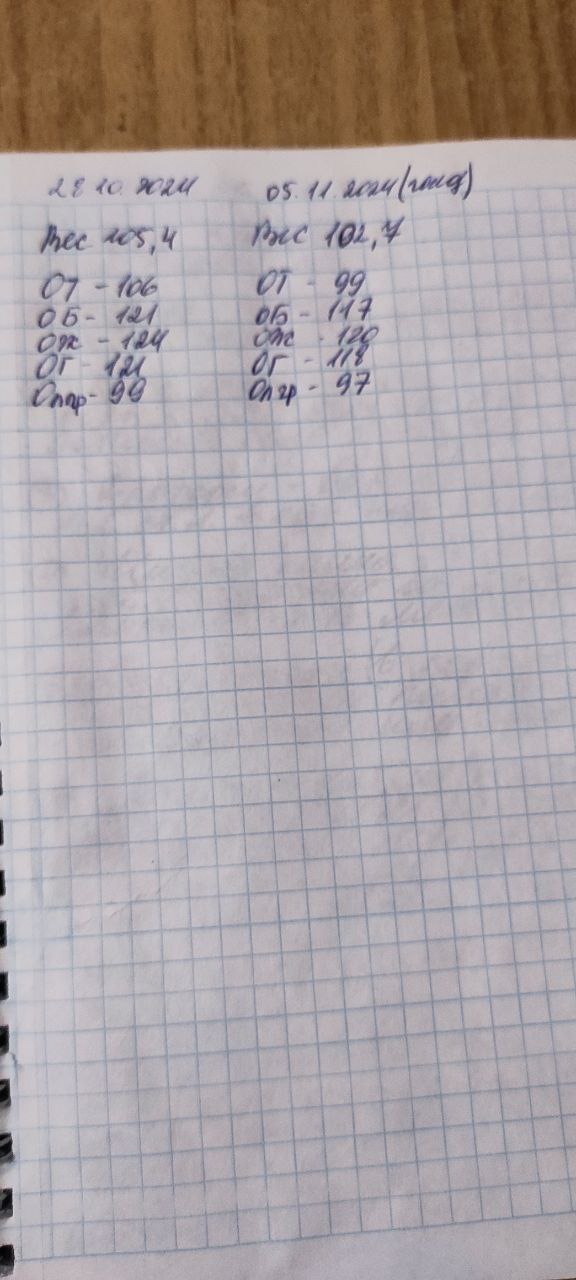 28.10.2024 05.11.2024 (голод)
Вес 105,4 Вес 102,7
ОТ - 106 ОТ - 99
ОБ - 121 ОБ - 117
ОЖ - 124 ОЖ - 120
ОГ - 121 ОГ - 118
Опгр - 99 Опгр - 97